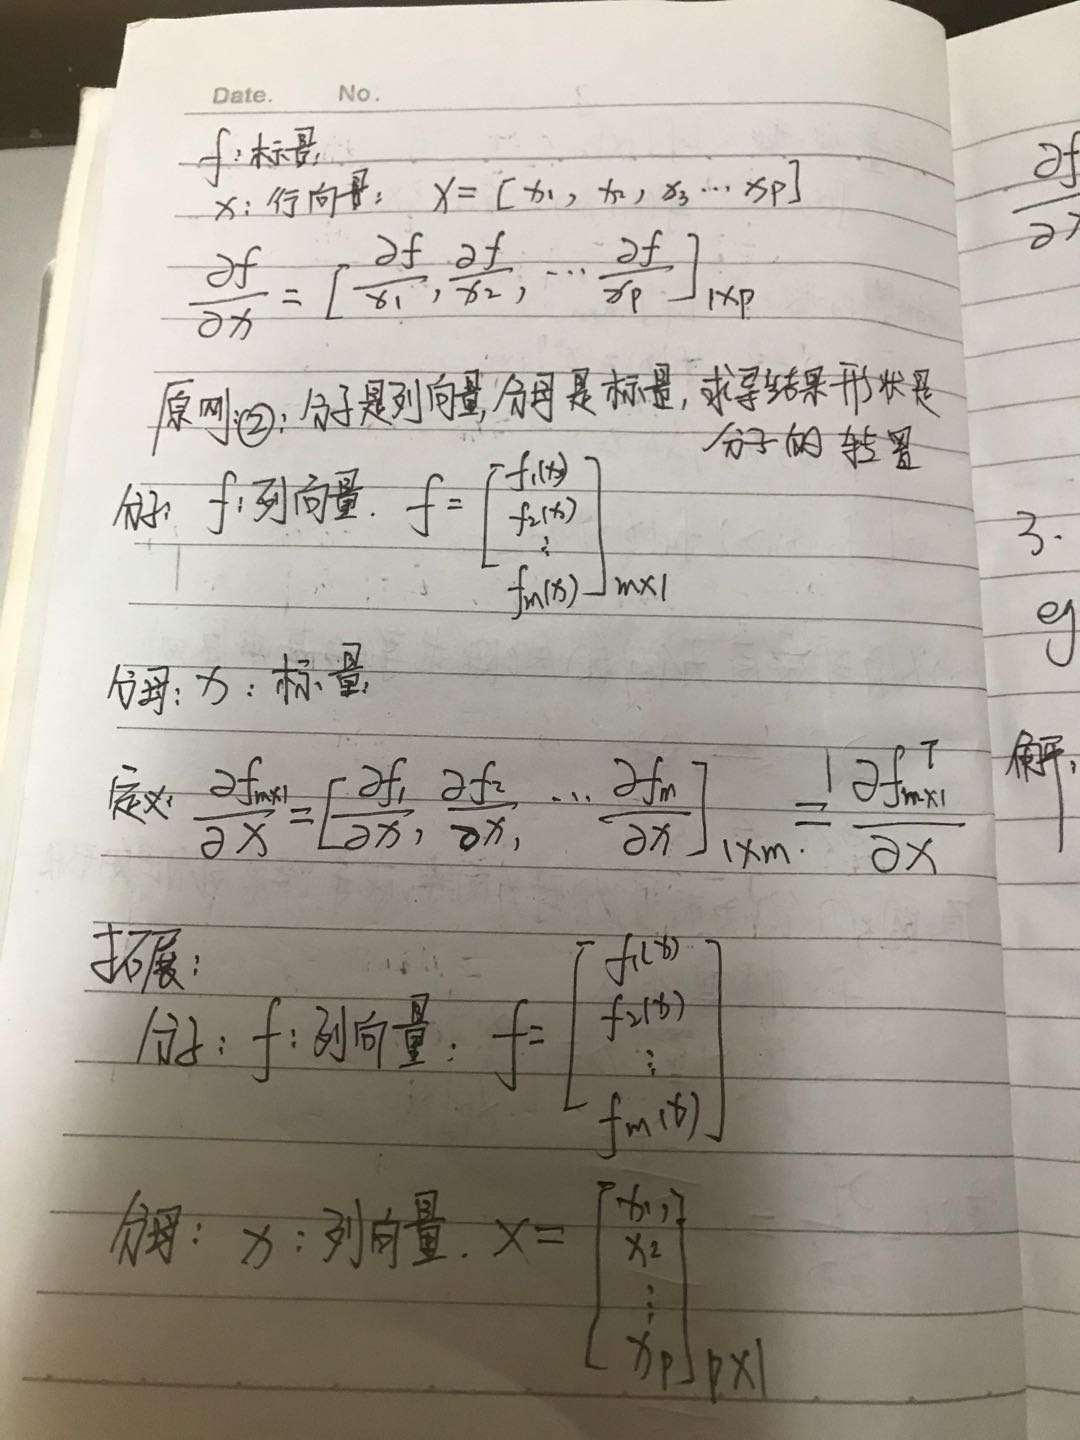 Date. No.
f: 标量;
x: 行向量; X = [x₁, x₂, x₃ ⋯ xp]
∂f/∂x = [∂f/x₁, ∂f/x₂, ⋯ ∂f/xp]1×p
原则②: 分子是列向量, 分母是标量, 求导结果形状是
分子的转置
分子: f: 列向量. f = [f₁(x) f₂(x) ⋮ fm(x)]m×1
分母: x: 标量;
定义: ∂fm×1/∂x = [∂f₁/∂x, ∂f₂/∂x, ⋯ ∂fm/∂x]1×m. = ∂fᵀm×1/∂x
拓展:
分子: f: 列向量. f = [f₁(x) f₂(x) ⋮ fm(x)]
分母: x: 列向量. X = [x₁, x₂ ⋮ xp]p×1
∂f
3.
eg
解: